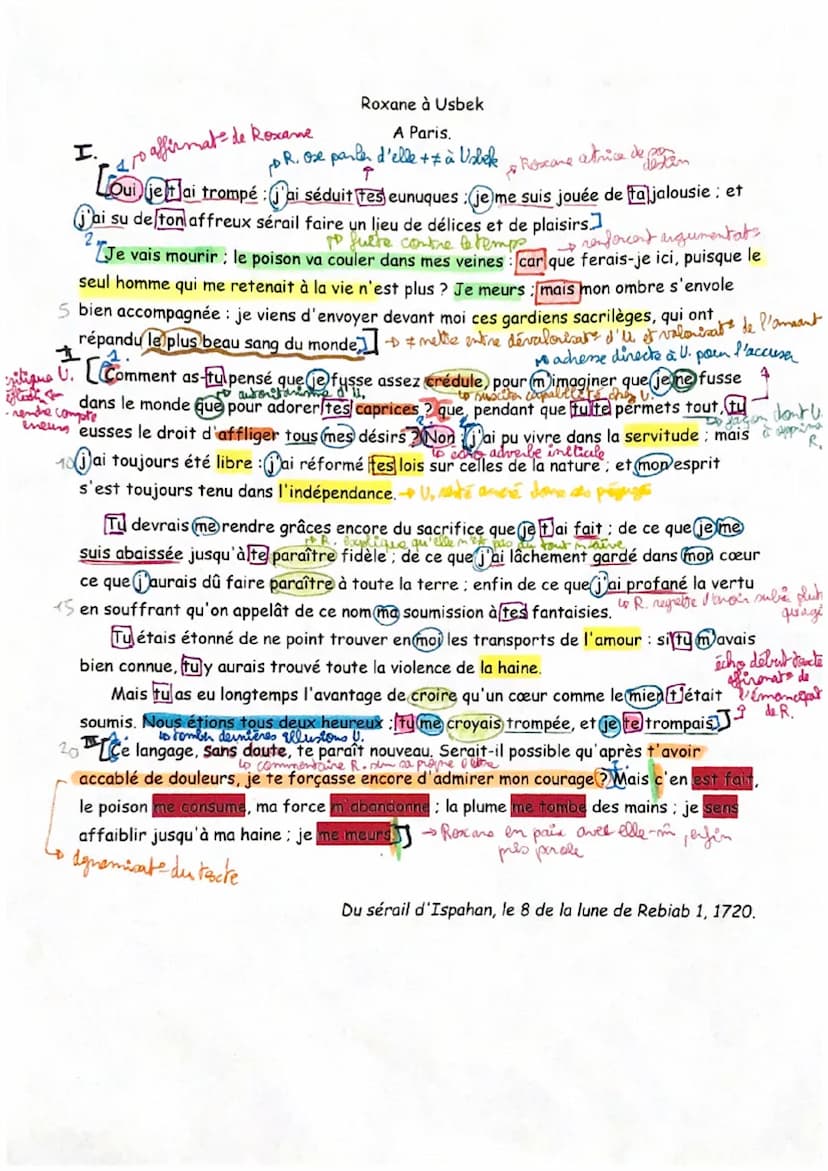 Roxane à Usbek
A Paris.
I.
1 affirmat° de Roxane
R. ose parler d'elle + ≠ à Usbek
Roxane actrice de son destin
Oui, je t'ai trompé ; j'ai séduit tes eunuques ; je me suis jouée de ta jalousie ; et
j'ai su de ton affreux sérail faire un lieu de délices et de plaisirs.
2 fuite contre le temps
renforcent argumentat°
Je vais mourir ; le poison va couler dans mes veines : car que ferais-je ici, puisque le
seul homme qui me retenait à la vie n'est plus ? Je meurs ; mais mon ombre s'envole
5 bien accompagnée : je viens d'envoyer devant moi ces gardiens sacrilèges, qui ont
répandu le plus beau sang du monde.
≠ entre dévalorisat° d'U et valorisat° de l'amant
adresse directe à U. pour l'accuser
II 1.
critique U.
rendre compte
Comment as-tu pensé que je fusse assez crédule, pour m'imaginer que je ne fusse
dans le monde que pour adorer tes caprices ? que, pendant que tu te permets tout, tu
façon dont U. opprime R.
eusses le droit d'affliger tous mes désirs ? Non : j'ai pu vivre dans la servitude ; mais
écho adverbe
10 j'ai toujours été libre : j'ai réformé tes lois sur celles de la nature ; et mon esprit
s'est toujours tenu dans l'indépendance.
U. resté ancré dans ses
Tu devrais me rendre grâces encore du sacrifice que je t'ai fait ; de ce que je me
R. explique qu'elle n'est pas du tout naïve
suis abaissée jusqu'à te paraître fidèle ; de ce que j'ai lâchement gardé dans mon cœur
ce que j'aurais dû faire paraître à toute la terre ; enfin de ce que j'ai profané la vertu
15 en souffrant qu'on appelât de ce nom ma soumission à tes fantaisies.
R. regrette d'avoir subi plutôt qu'agi
Tu étais étonné de ne point trouver en moi les transports de l'amour : si tu m'avais
bien connue, tu y aurais trouvé toute la violence de la haine.
écho début texte
affirmat° de l'émancipat° de R.
Mais tu as eu longtemps l'avantage de croire qu'un cœur comme le mien t'était
soumis. Nous étions tous deux heureux ; tu me croyais trompée, et je te trompais.
tomber dernières illusions U.
20 III Ce langage, sans doute, te paraît nouveau. Serait-il possible qu'après t'avoir
commentaire R. sur sa propre lettre
accablé de douleurs, je te forçasse encore d'admirer mon courage ? Mais c'en est fait,
le poison me consume, ma force m'abandonne ; la plume me tombe des mains ; je sens
affaiblir jusqu'à ma haine ; je me meurs.
Roxane en paix avec elle-m̂, enfin
près parole
dynamisat° du texte
Du sérail d'Ispahan, le 8 de la lune de Rebiab 1, 1720.